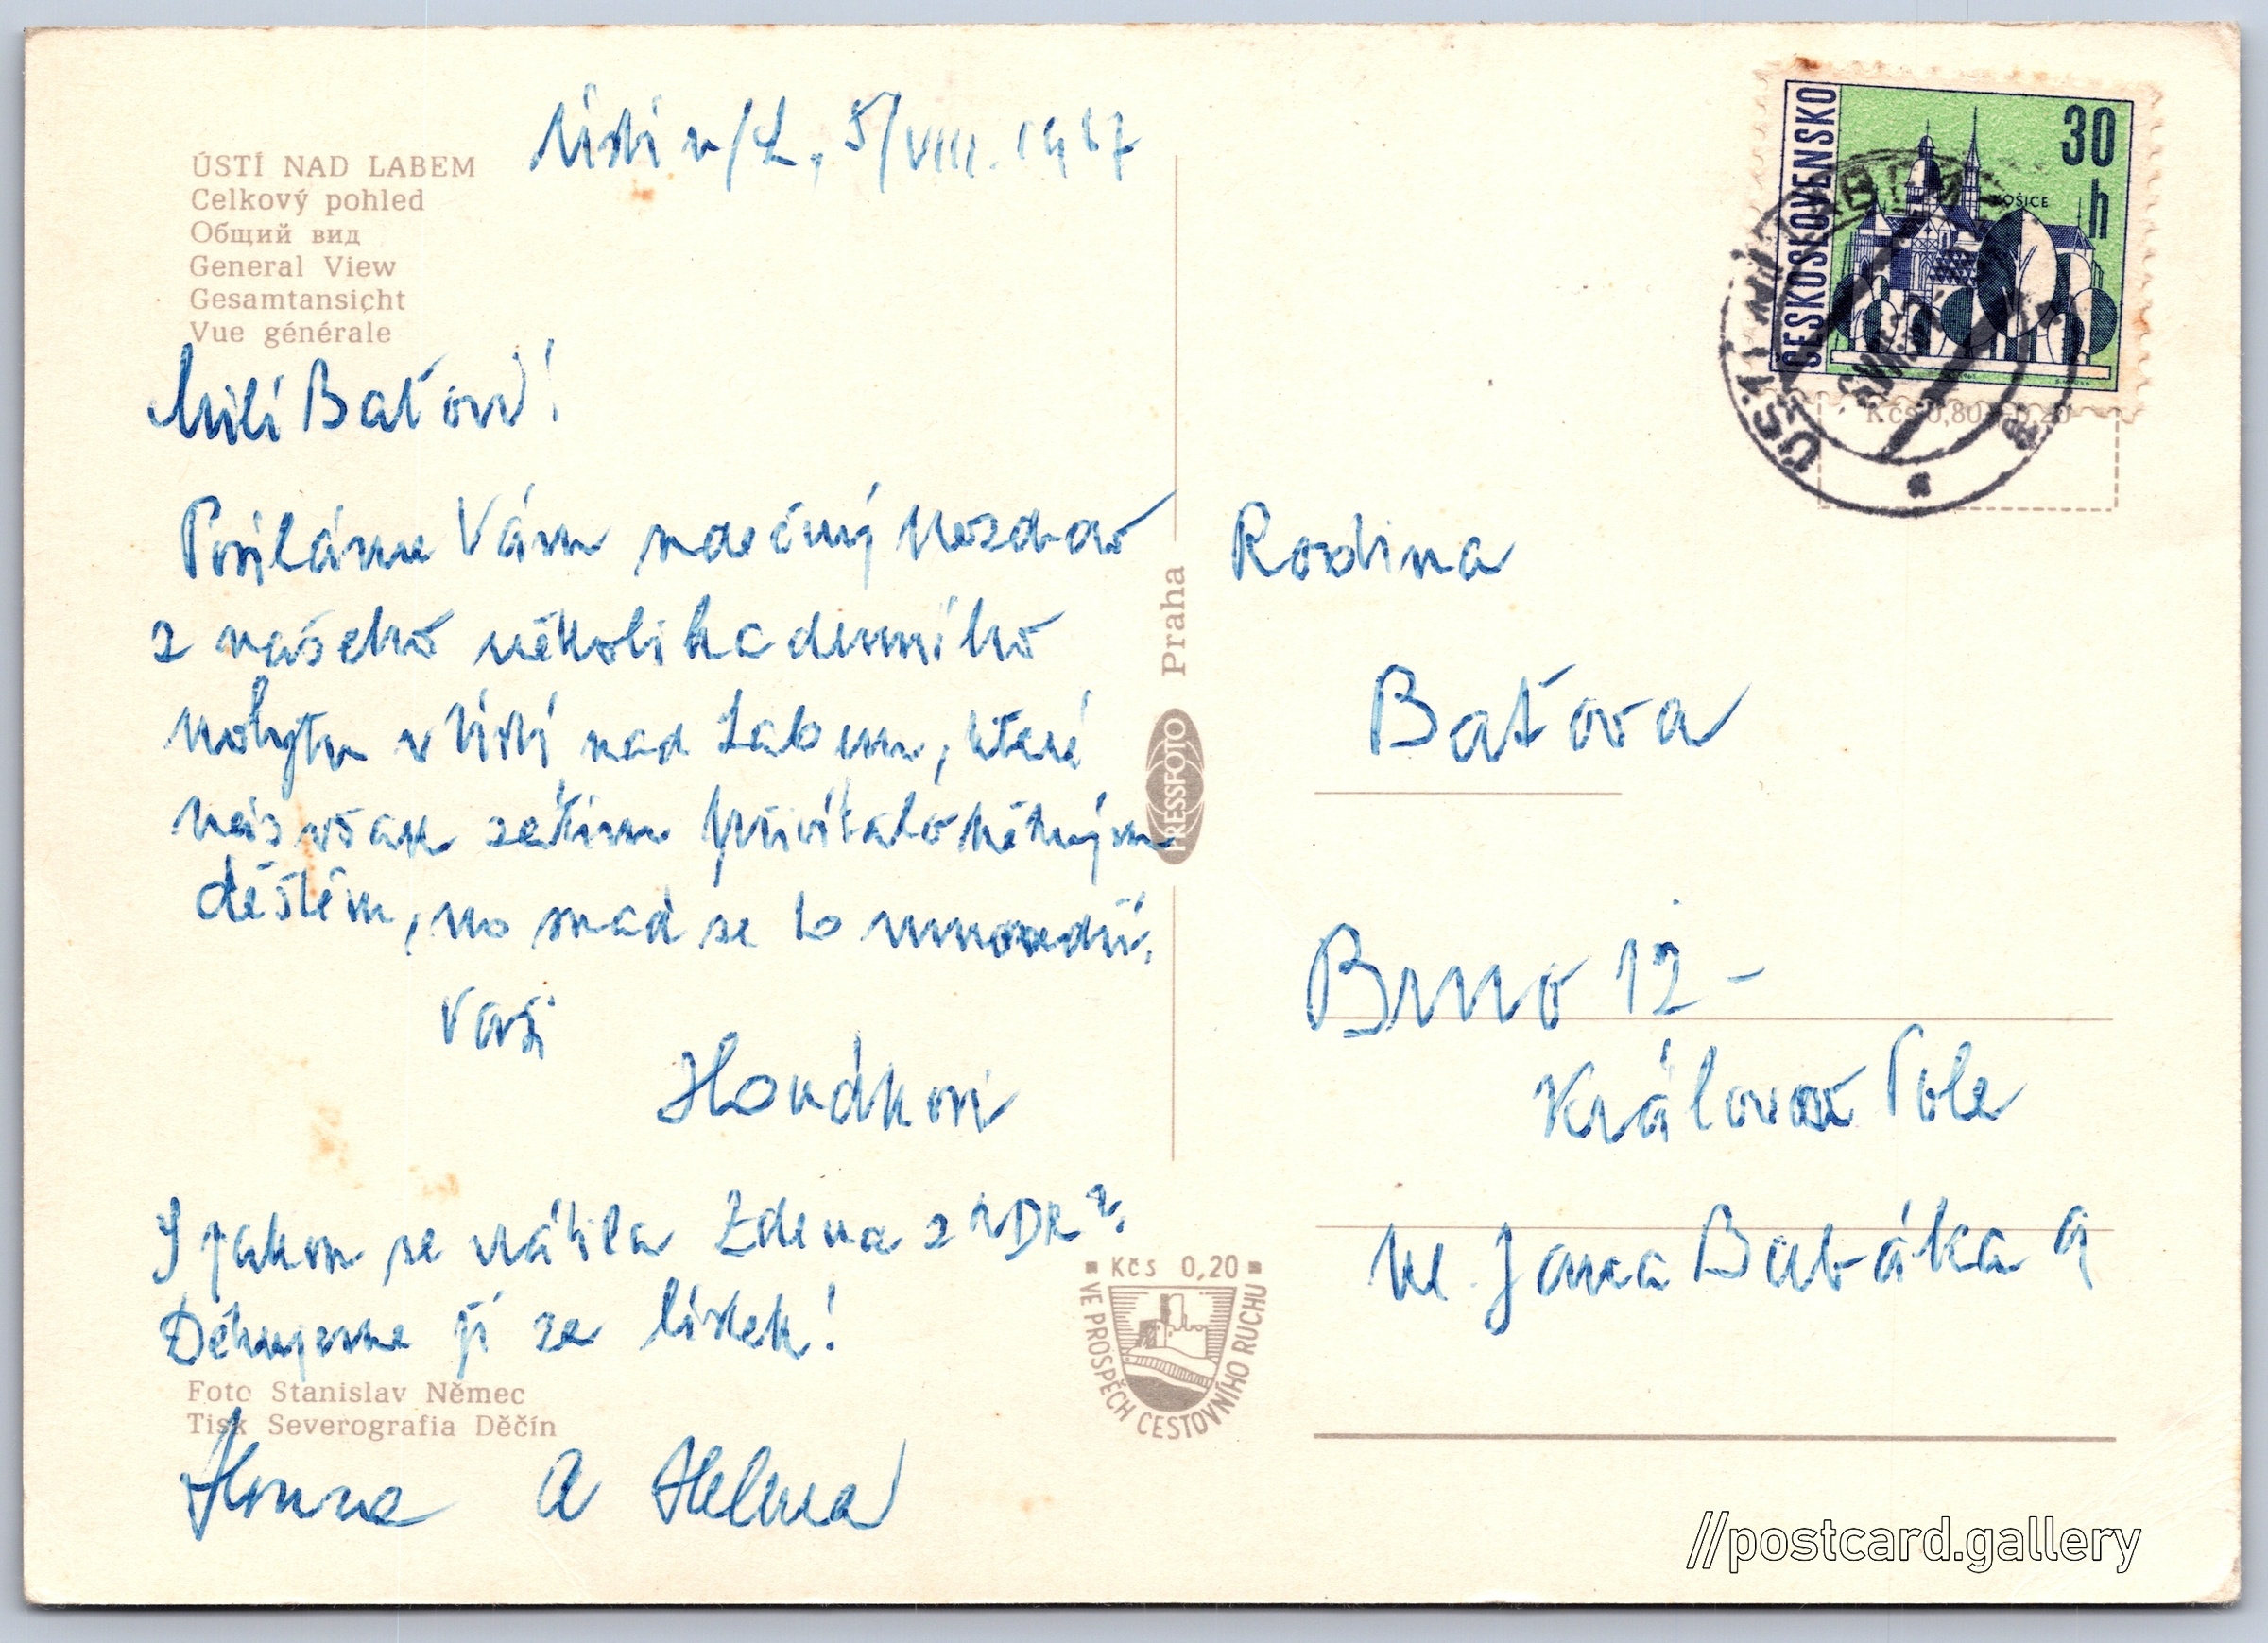 ÚSTÍ NAD LABEM
Celkový pohled
Общий вид
General View
Gesamtansicht
Vue générale
Ústí n/L, 5/VIII. 1967
Milí Baťovi!
Posíláme Vám srdečný pozdrav
z našeho několikadenního
pobytu v Ústí nad Labem, které
nás však zatím přivítalo pěkným
deštěm, no snad se to umoudří.
Vaši
Houdkovi
I jakou se vrátila Zdena z NDR?
Děkujeme jí za lístek!
Foto Stanislav Němec
Tisk Severografia Děčín
Honza a Helena
PRESSFOTO Praha
Kčs 0,20
VE PROSPĚCH CESTOVNÍHO RUCHU
ČESKOSLOVENSKO
30 h
KOŠICE
ÚSTÍ N. LABEM
Kčs 0,80
Rodina
Baťova
Brno 12 -
Královo Pole
ul. Jana Babáka 9
//postcard.gallery